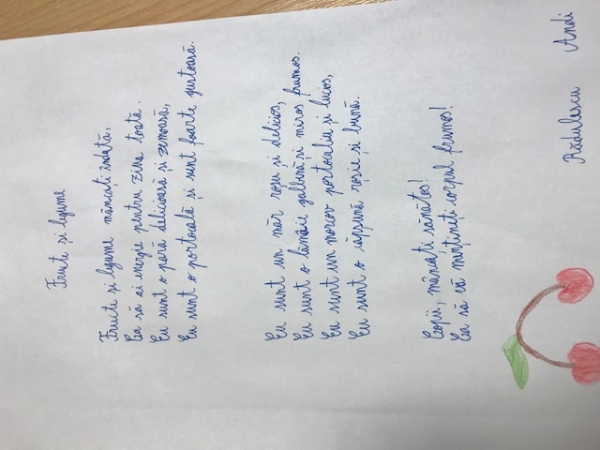 Fructe și legume
Fructe și legume mâncați îndată,
Ca să ai energie pentru ziua toată.
Eu sunt o pară delicioasă și zemoasă,
Eu sunt o portocală și sunt foarte gustoasă.
Eu sunt un măr roșu și delicios,
Eu sunt o lămâie galbenă și miros frumos.
Eu sunt un morcov portocaliu și lucios,
Eu sunt o căpșună roșie și bună.
Copii, mâncați sănătos!
Ca să vă mențineți corpul frumos!
Rădulescu Andi